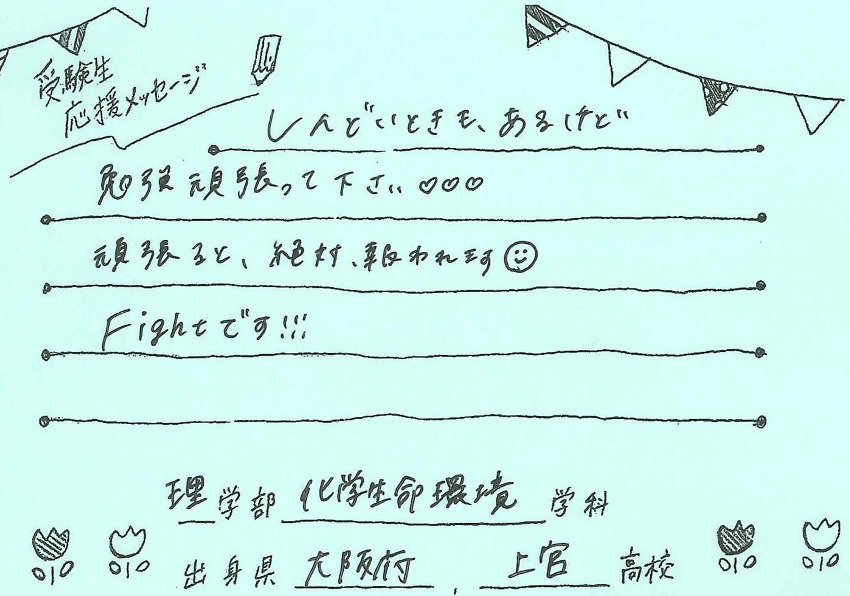 受験生
応援メッセージ
しんどいときも、あるけど
勉強頑張って下さい♡♡♡
頑張ると、絶対、報われます☺
Fightです!!!
理学部 化学生命環境学科
出身県 大阪府, 上宮高校